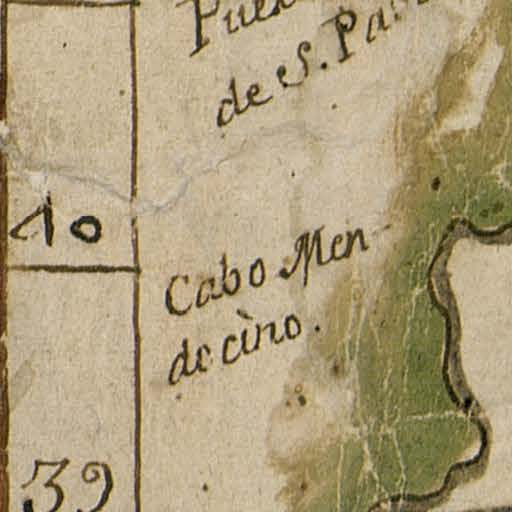 de S. Pa
40
Cabo Men-
decino.
39